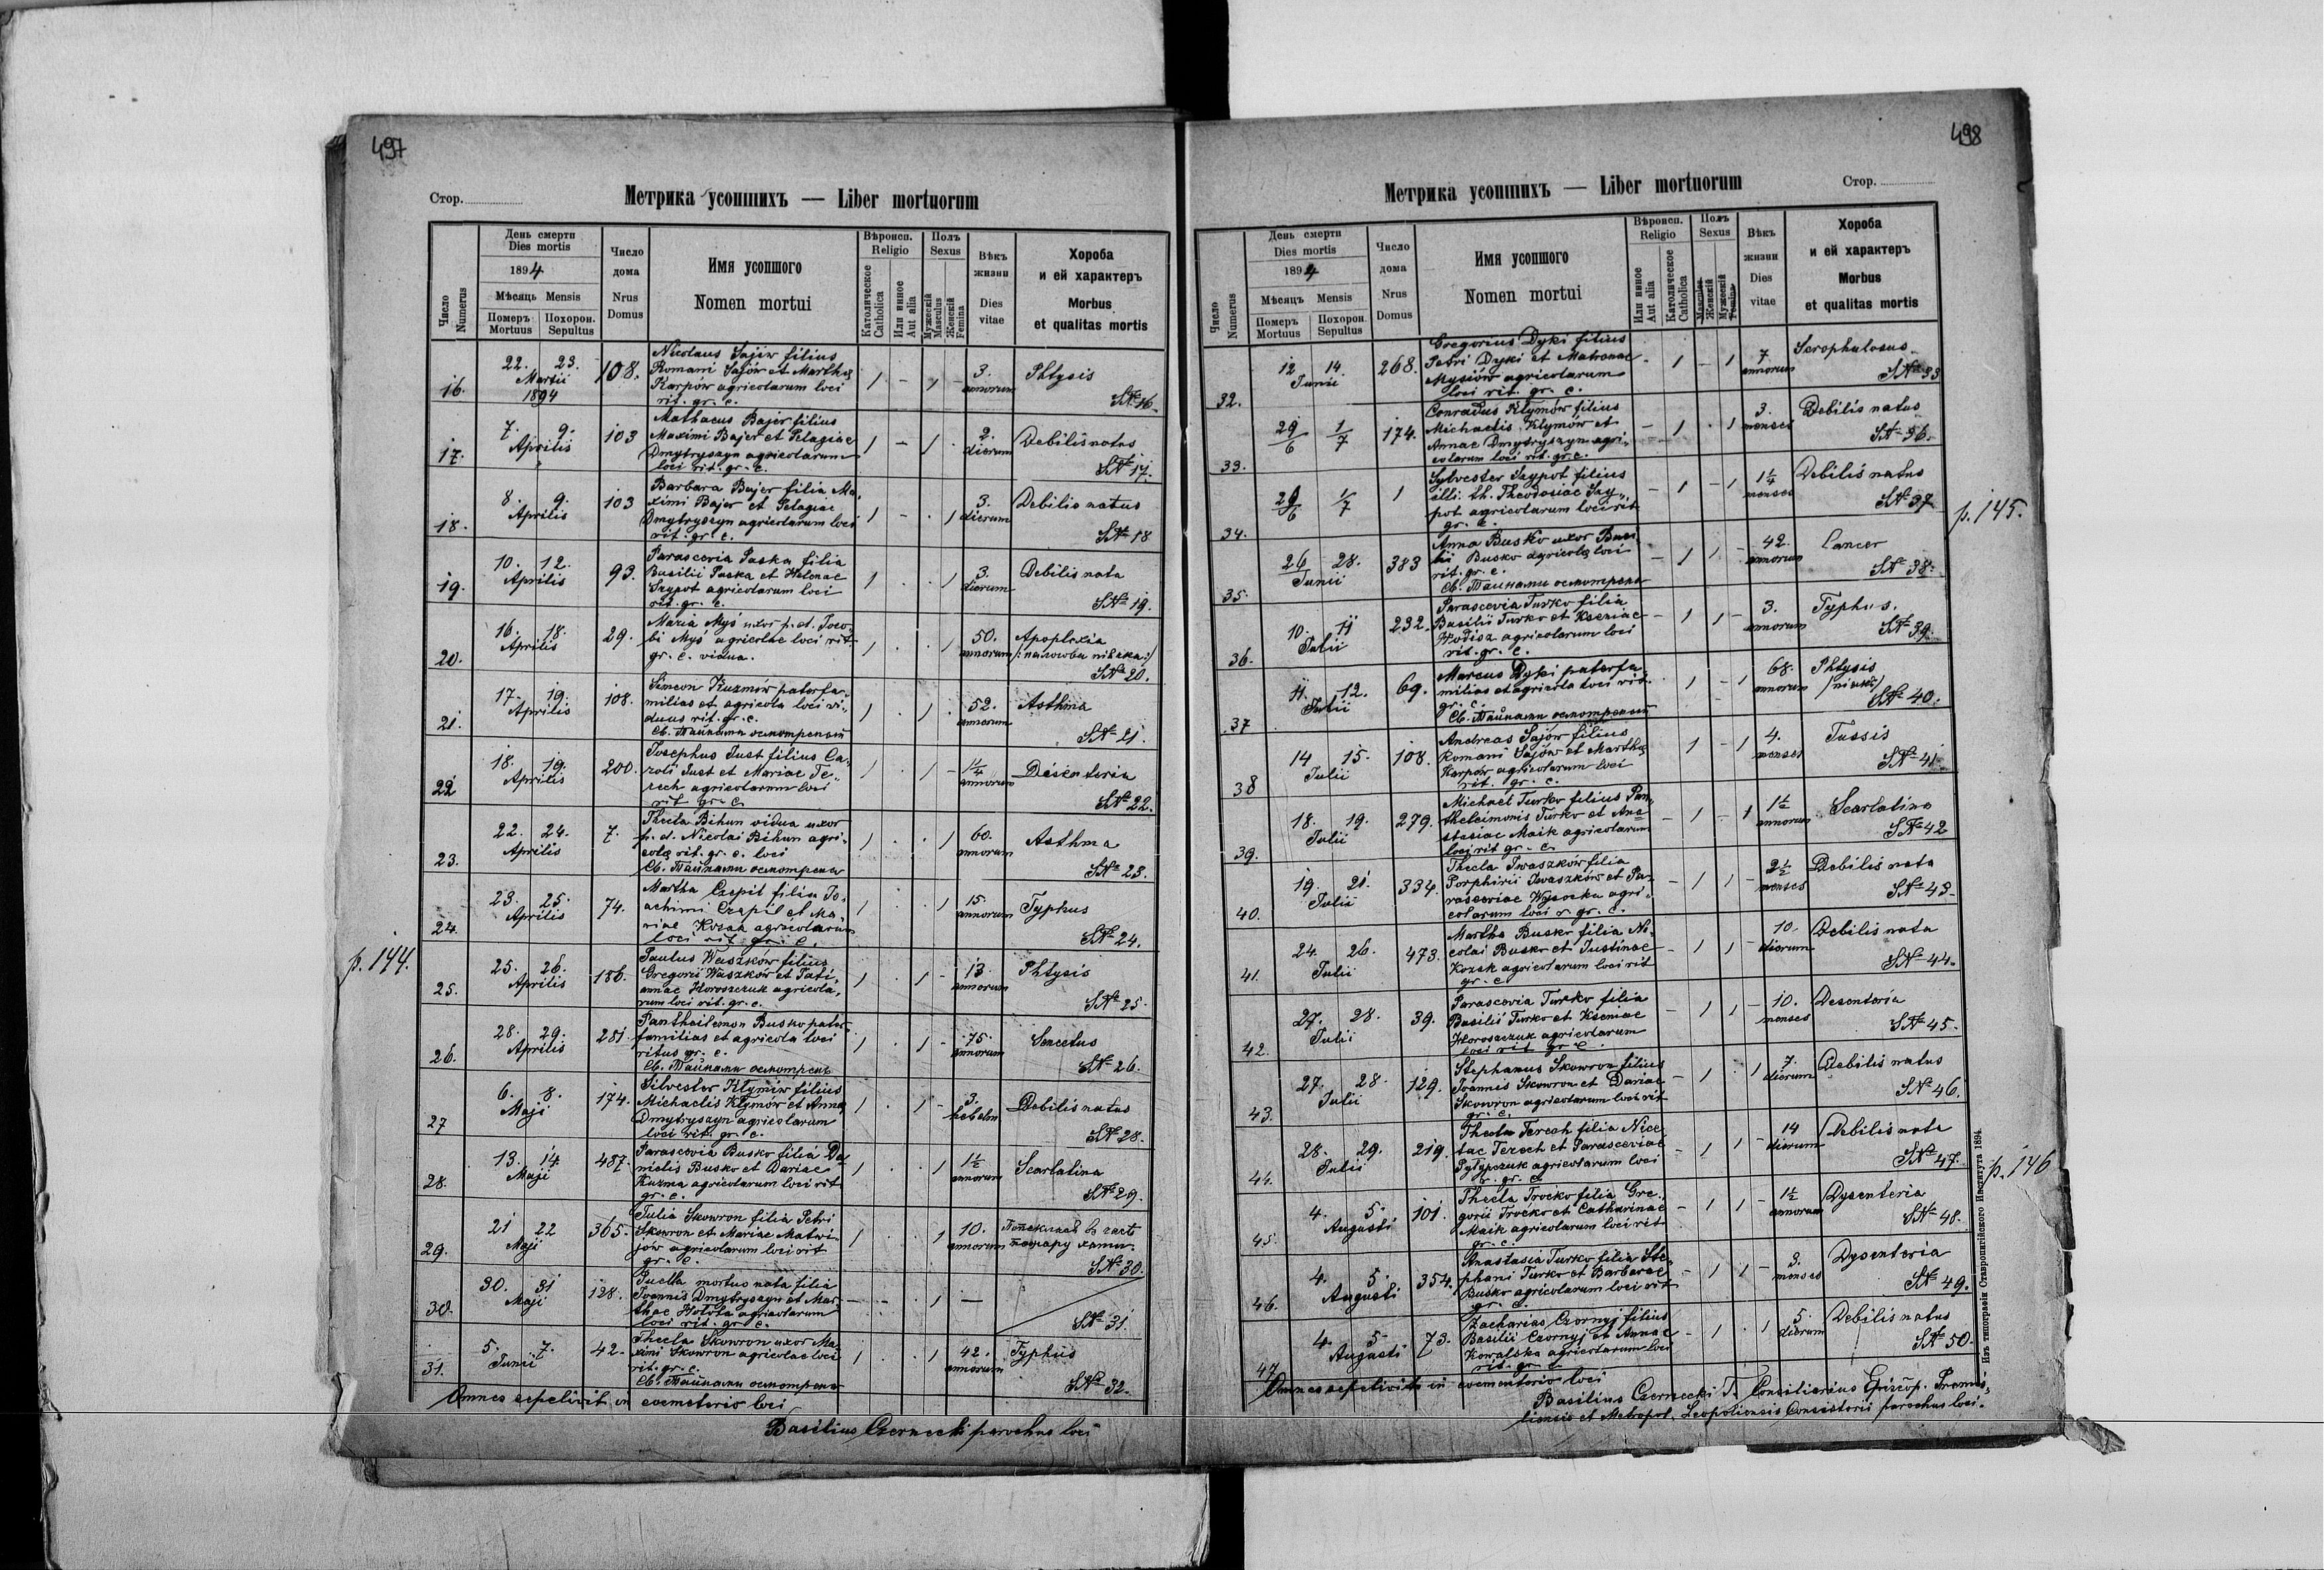 497
Стор.
Метрика усопшихъ — Liber mortuorum
Число Numerus
День смерти
Dies mortis
1894
Мѣсяць Mensis
Померъ Mortuus
Похорон. Sepultus
Число дома Nrus Domus
Имя усопшого
Nomen mortui
Вѣроисп. Religio
Католическое Catholica
Или инное Aut alia
Полъ Sexus
Мужескій Masculus
Женскій Femina
Вѣкъ жизни Dies vitae
Хороба и ей характеръ
Morbus et qualitas mortis
Nicolaus Sajów filius
22. 23. 108. Romani Sajów et Marthae 1 - 1 - 3. Phtysis
Martii Karpów agricolarum loci annorum
16. 1894 rit. gr. c. SN 16.
Mathaeus Bajer filius
7. 9. 103 Maximi Bajer et Pelagiae 1 - 1 . 2. Debilis natus
Aprilis Dmytryszyn agricolarum dierum
17. loci rit. gr. c. SN 17.
Barbara Bajer filia Ma-
8. 9. 103 ximi Bajer et Pelagiae 3. Debilis natus
Aprilis Dmytryszyn agricolarum loci 1 - . 1 dierum
18. rit. gr. c. SN 18
Parascevia Paska filia
10. 12. 93. Basilii Paska et Helenae 1 . . 1 3. Debilis nata
Aprilis Szypot agricolarum loci dierum
19. rit. gr. c. SN 19.
Maria Myś uxor p. d. Jaco-
16. 18. 29. bi Myś agricolae loci rit. 1 . . 1 50. Apoplexia
Aprilis gr. c. vidua. annorum
20. SN 20.
Simeon Kuzmów paterfa-
17. 19. 108. milias et agricola loci vi- 1 . 1 . 52. Asthma
Aprilis duus rit. gr. c. annorum
21. Св. Тайнами осмотреный SN 21.
Josephus Just filius Ca-
18. 19. 200. roli Just et Mariae Te- 1 . 1 - 1/4 Desenteria
Aprilis rech agricolarum loci annorum
22 rit. gr. c. SN 22.
Thecla Bihun vidua uxor
22. 24. 7. p. d. Nicolai Bihun agri- 1 . . 1 60. Asthma
Aprilis colae rit. gr. c. loci annorum
23. Св. Тайнами осмотрена SN 23.
Martha Czepil filia Jo-
23. 25. 74. achimi Czepil et Ma- 1 . . 1 15. Typhus
Aprilis riae Kozak agricolarum annorum
24. loci rit. gr. c. SN 24.
p. 144.
Paulus Waszków filius
25. 26. 186. Gregorii Waszków et Tati- 1 . 1 - 13. Phtysis
Aprilis annae Horoszczuk agricola- annorum
25. rum loci rit. gr. c. SN 25.
Pantheilemon Busko pater-
28. 29. 281 familias et agricola loci 1 . 1 - 75. Senectus
Aprilis ritus gr. c. annorum
26. Св. Тайнами осмотренъ SN 26.
Silvester Kłymów filius
6. 8. 174. Michaelis Kłymów et Annae 1 . 1 - 3. Debilis natus
Maji Dmytryszyn agricolarum
27 loci rit. gr. c. SN 28.
Parascevia Busko filia Da-
13. 14. 487. nielis Busko et Dariae 1 . . 1 1 1/2 Scarlatina
Maji Kuzma agricolarum loci rit annorum
28. gr. c. SN 29.
Julia Skowron filia Petri
21 22 365. Skowron et Mariae Matwi- 1 . . 1 10. 
Maji jów agricolarum loci rit annorum пожару хати.
29. gr. c. SN 30.
Puella mortuo nata filia
30. 31 128. Joannis Dmytryszyn et Mar- - - . 1 -
Maji thae Hołota agricolarum
30. loci rit. gr. c. SN 31.
Thecla Skowron uxor Ma-
5. 7. 42. ximi Skowron agricolae loci 1 . . 1 42. Typhus
Junii rit. gr. c. annorum
31. Св. Тайнами осмотрена SN 32.
Omnes sepelivit in coemeterio loci
Basilius Czernecki parochus loci
498
Метрика усопшихъ — Liber mortuorum
Стор.
Число Numerus
День смерти
Dies mortis
1894
Мѣсяцъ Mensis
Померъ Mortuus
Похорон. Sepultus
Число дома Nrus Domus
Имя усопшого
Nomen mortui
Вѣроисп. Religio
Или инное Aut alia
Католическое Catholica
Полъ Sexus
Masculus Женскій
Мужескій Femina
Вѣкъ жизни Dies vitae
Хороба и ей характеръ
Morbus et qualitas mortis
Gregorius Dyki filius
12 14. 268. Petri Dyki et Matronae - 1 - 1 7 Scrophulosus
Junii Mysiów agricolarum annorum
32. loci rit. gr. c. SN 33
Conradus Kłymów filius
29/6 1/7 174. Michaelis Kłymów et - 1 . 1 3. Debilis natus
Annae Dmytryszyn agri- menses
33. colarum loci rit. gr. c. SN 36.
Sylvester Szypot filius
29/6 1/7 1 illi. th. Theodosiae Szy- - 1 - 1 1 1/4 Debilis natus
pot agricolarum loci rit menses
34. gr. c. SN 37
p. 145.
Anna Busko uxor Basi-
26 28. 383 lii Busko agricolae loci - 1 1 - 42. Cancer
Junii rit. gr. c. annorum
35. Св. Тайнами осмотрена SN 38.
Parascevia Turko filia
10. 11 232. Basilii Turko et Kseniae - 1 1 - 3. Typhus.
Julii Hodisz agricolarum loci annorum
36. rit. gr. c. SN 39.
Marcus Dyki paterfa-
11. 12. 69. milias et agricola loci rit. 1 - 1 68. Phtysis
Julii gr. c. annorum
37 Св. Тайнами осмотреный SN 40.
Andreas Sajów filius
14 15. 108. Romani Sajów et Marthae 1 - 1 4. Tussis
Julii Karpów agricolarum loci menses
38 rit. gr. c. SN 41.
Michael Turko filius Pan-
18. 19. 279. theleimonis Turko et Ana- - 1 - 1 1 1/2 Scarlatina
Julii stasiae Maik agricolarum annorum
39. loci rit gr. c. SN 42
Thecla Iwaszków filia
19. 21. 334. Porphirii Iwaszków et Pa- - 1 1 - 2 1/2 Debilis nata
Julii rasceviae Wysocka agri- menses
40. colarum loci r. gr. c. SN 43.
Martha Busko filia Ni-
24. 26. 473. colai Busko et Justinae - 1 1 - 10. Debilis nata
Julii Kozak agricolarum loci rit dierum
41. gr. c. SN 44.
Parascevia Turko filia
27. 28. 39. Basilii Turko et Kseniae - 1 1 - 10. Desenteria
Julii Horoszczuk agricolarum menses
42. loci rit gr c. SN 45.
Stephanus Skowron filius
27. 28. 129. Joannis Skowron et Dariae - 1 . 1 7. Debilis natus
Julii Skowron agricolarum loci rit dierum
43. gr. c. SN 46.
Thecla Terech filia Nice-
28. 29. 219. tae Terech et Parasceviae - 1 1 - 14 Debilis nata
Julii Pyłypczuk agricolarum loci dierum
44. r. gr. c. SN 47.
p. 146
Thecla Troćko filia Gre-
4. 5. 101. gorii Troćko et Catharinae - 1 1 - 1 1/2 Dysenteria
Augusti Maik agricolarum loci rit annorum
45. gr. c. SN 48.
Anastasia Turko filia Ste-
4. 5. 354. phani Turko et Barbarae - 1 1 - 3. Dysenteria
Augusti Busko agricolarum loci rit menses
46. gr. c. SN 49.
Zacharias Czornyj filius
4. 5 73. Basilii Czornyj et Annae - 1 . 1 5. Debilis natus
Augusti Kowalska agricolarum loci dierum
47. rit. gr. c. SN 50.
Omnes sepelivit in coemeterio loci
Basilius Czernecki T. Consiliarius Episcop. Premis-
liensis et Metropol. Leopoliensis Consistorii parochus loci.
Изъ типографіи Ставропигійского Института 1894.